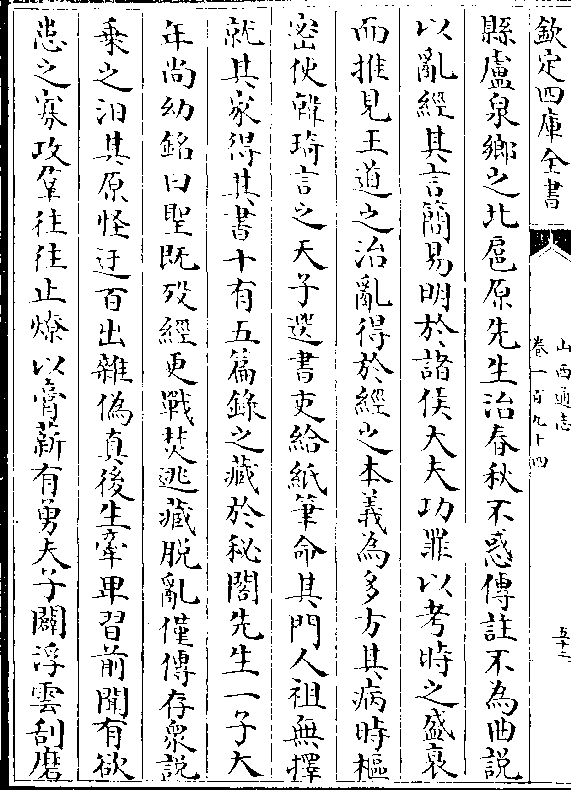 欽定四庫全書
山西通志
卷一百九十四
五十二
縣盧泉鄉之北扈原先生治春秋不惑傳註不為曲說
以亂經其言簡易明於諸侯大夫功罪以考時之盛衰
而推見王道之治亂得於經之本義為多方其病時樞
密使韓琦言之天子選書吏給紙筆命其門人祖無擇
就其家得其書十有五篇錄之藏於秘閣先生一子大
年尚幼銘曰聖既歿經更戰焚逃藏脫亂僅傳存衆說
乗之汨其原怪迂百出雜偽真後生牽卑習前聞有欲
患之寡攻羣往往止燎以膏薪有勇夫子闢浮雲刮磨